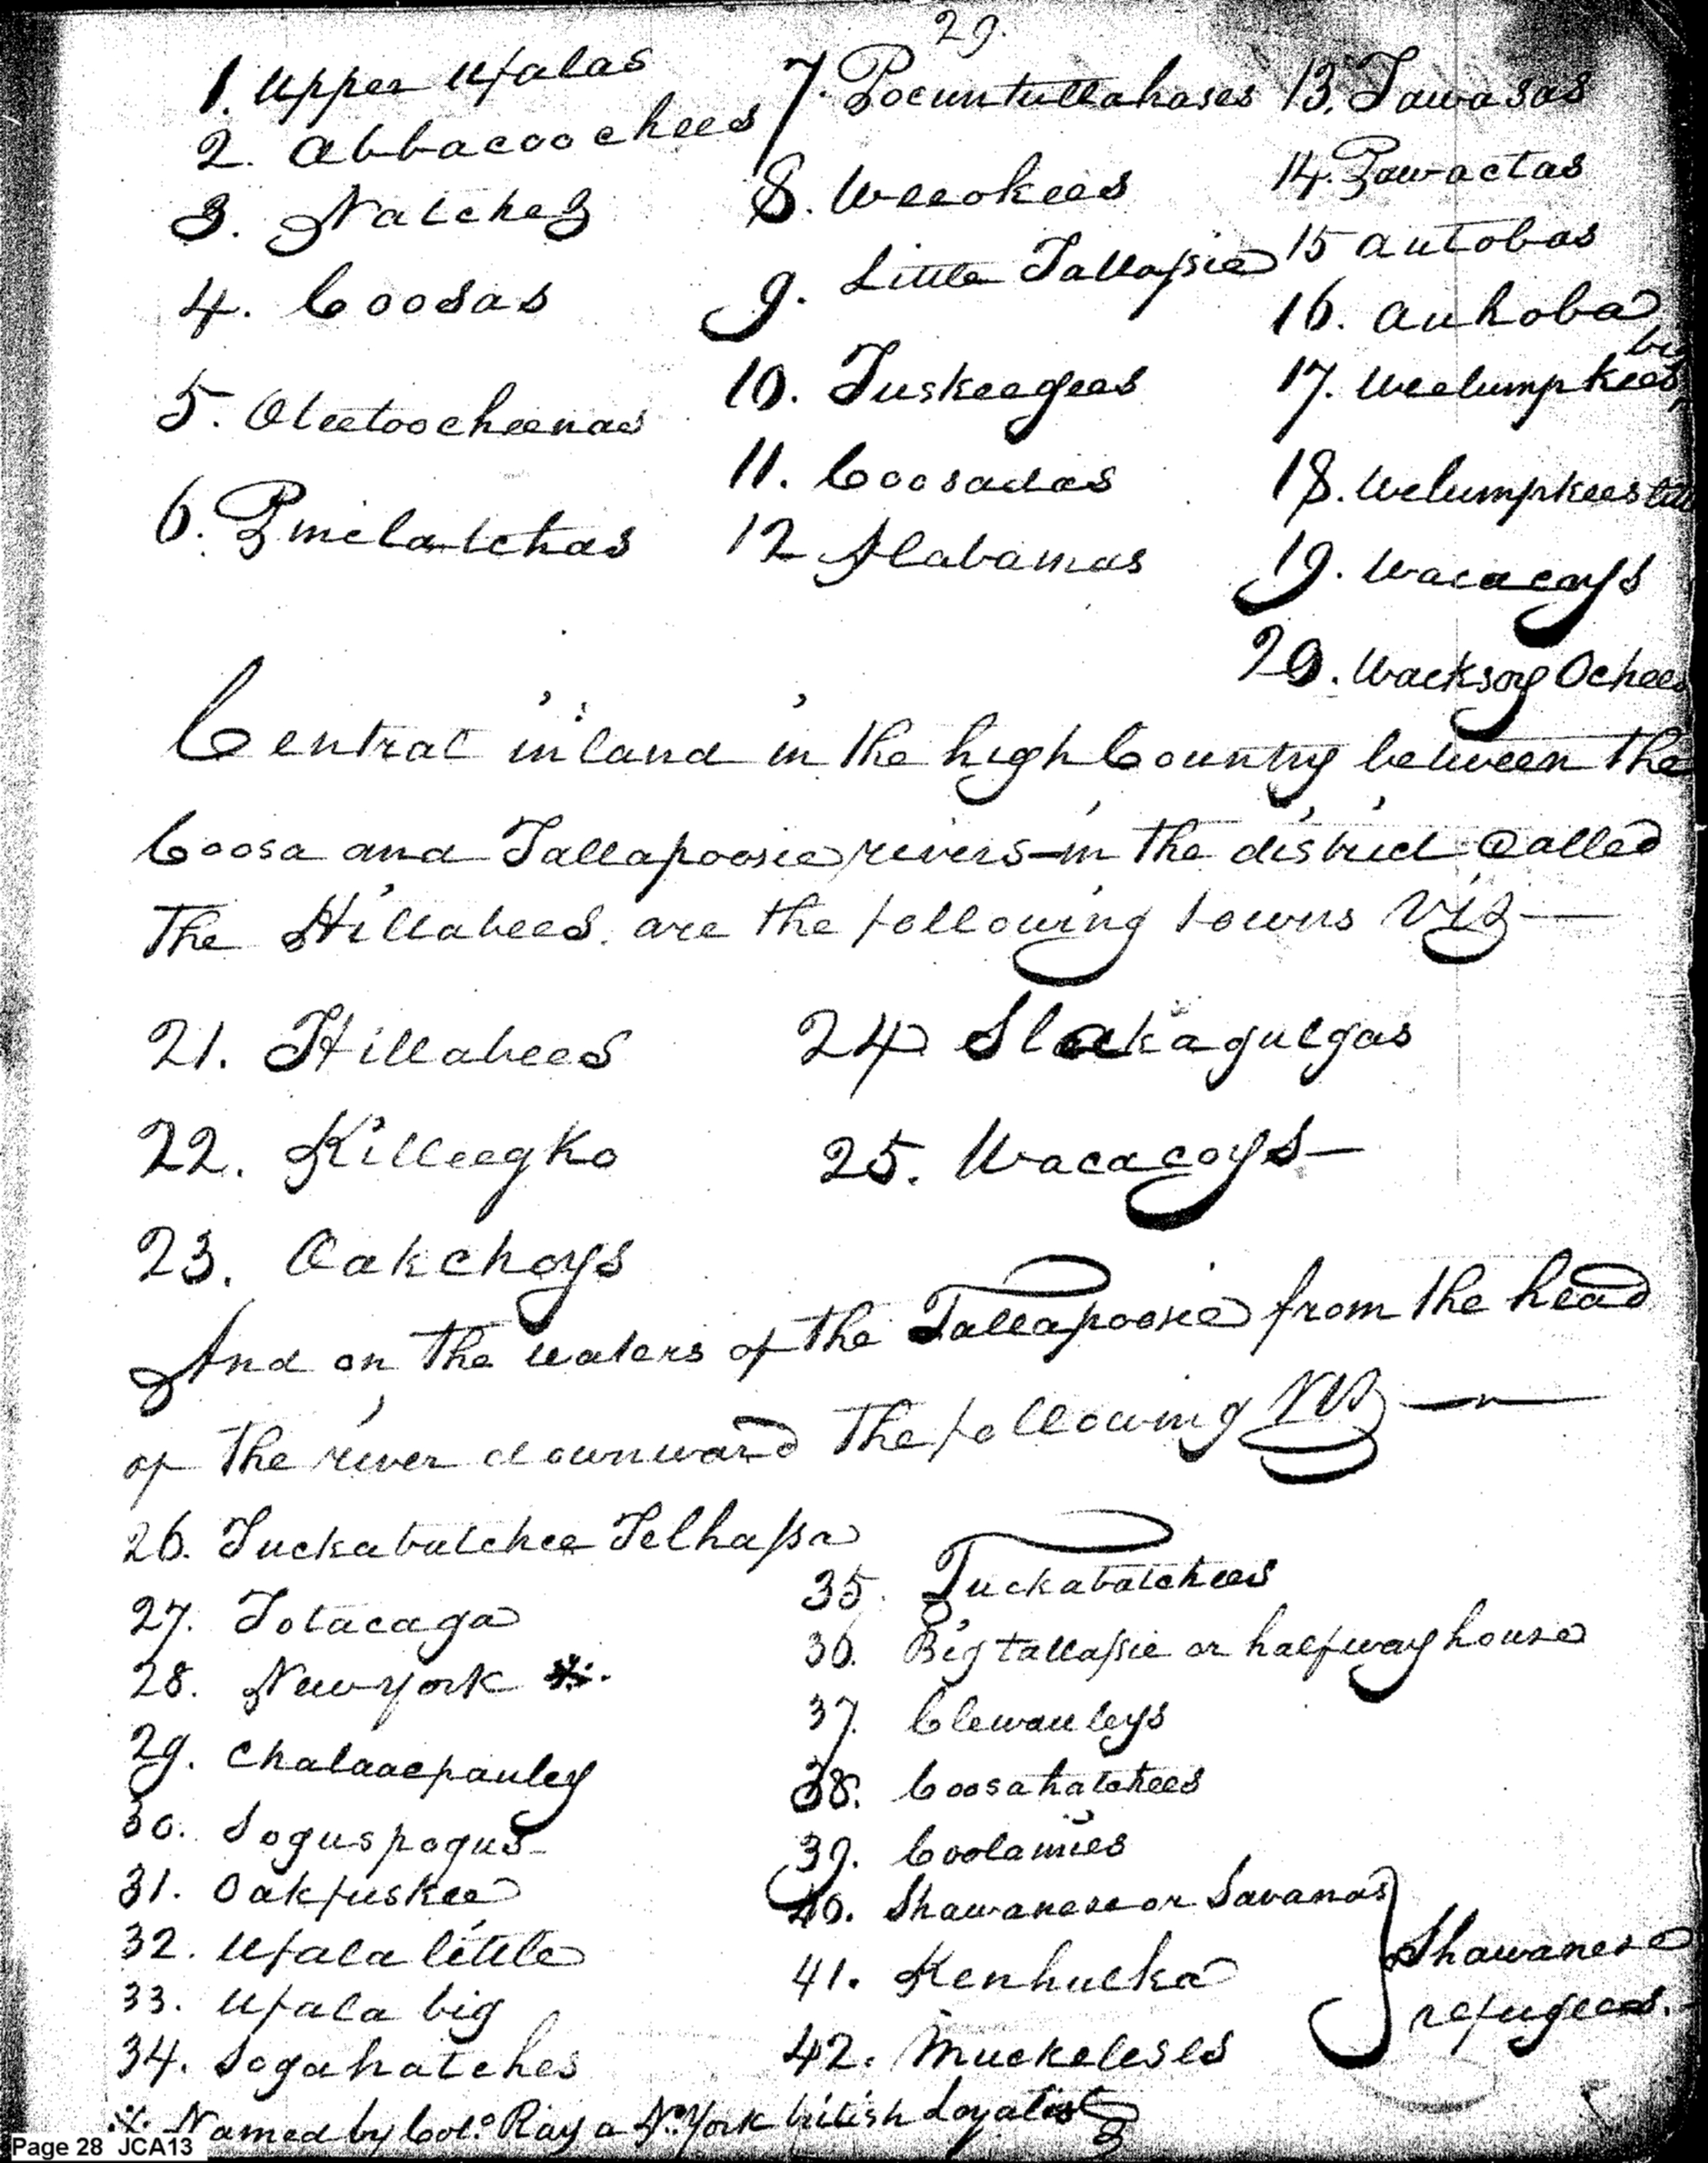 29.
1. Upper Ufalas
2. Abbacoochees
3. Natchez
4. Coosas
5. Oteetoocheenas
6. Pinclatchas
7. Pocuntullahases
8. Weeokees
9. Little Tallassie
10. Tuskeegees
11. Coosadas
12 Alabamas
13. Tawasas
14. Pawactas
15 autobas
16. auhoba
17. Weelumpkees big
18. Welumpkees
19. Wacacoys
20. Wacksoy Ochees
Central inland in the high Country between the
Coosa and Tallapoosie rivers in the district Called
The Hillabees. are the following towns Viz—
21. Hillabees
22. Killeegko
23. Oakchoys
24 Slakagulgas
25. Wacacoys—
And on the waters of the Tallapoosie from the head
of the river downward The following Viz—
26. Tuckabatchee Telhassa
27. Totacaga
28. New york *.
29. Chalaacpauley
30. Soguspogus
31. Oakfuskee
32. Ufala little
33. Ufala big
34. Sogahatches
35. Tuckabatchees
36. Big tallassie or halfway house
37. Clewauleys
38. Coosahatchees
39. Coolamies
40. Shawanese or Savanas
41. Kenhulka
42. Muckeleses
Shawanese
refugees.
*. Named by Col.o Ray a N. York british Loyalist
Page 28 JCA13